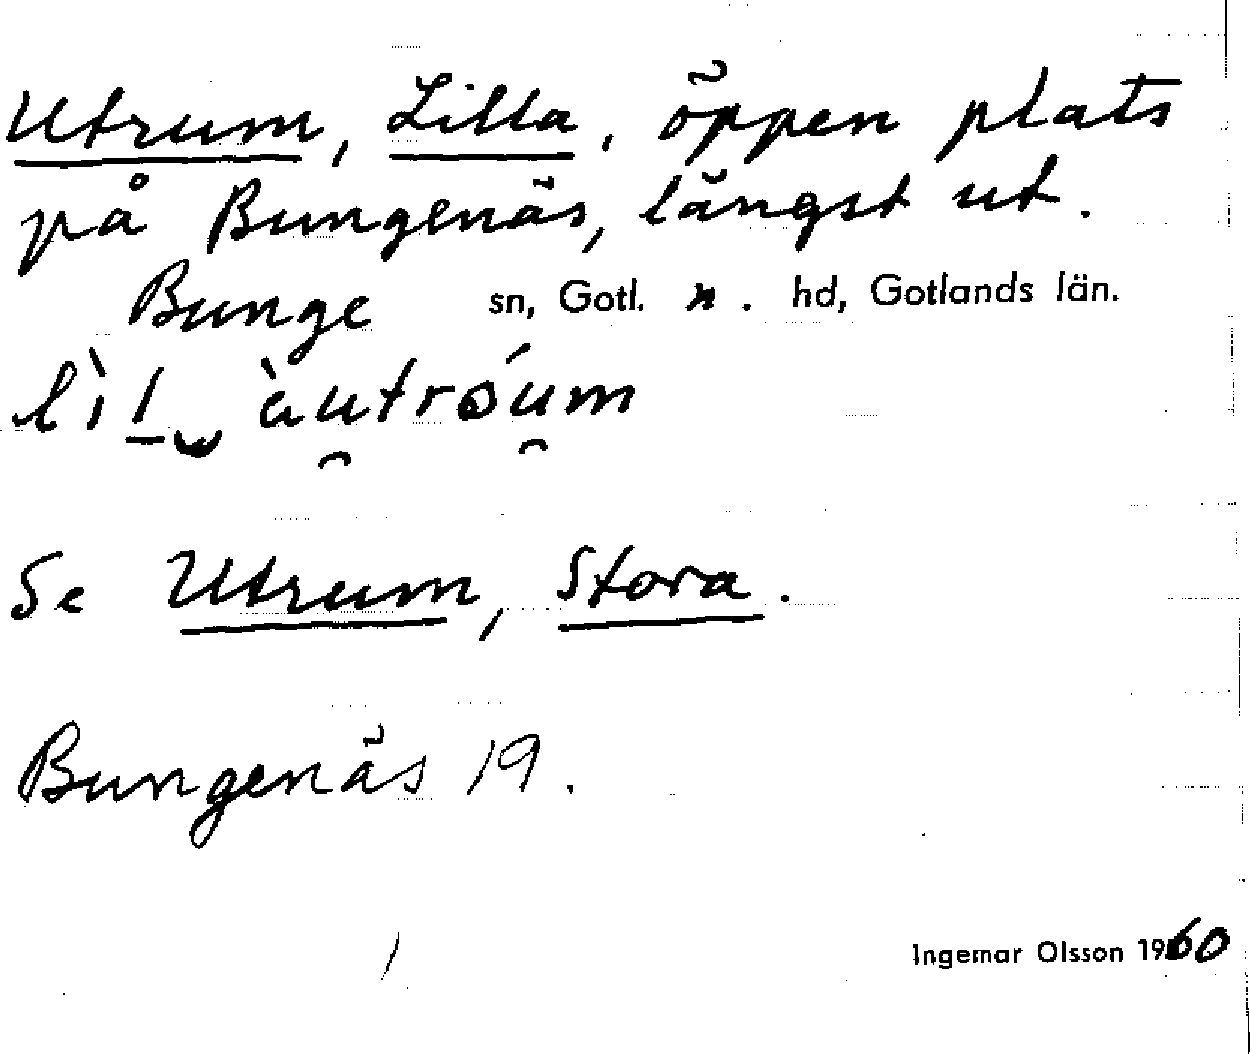 Utrum, Lilla, öppen plats
på Bungenäs, längst ut.
Bunge sn, Gotl. n. hd, Gotlands län.
Se Utrum, Stora.
Bungenäs 19.
Ingemar Olsson 1960